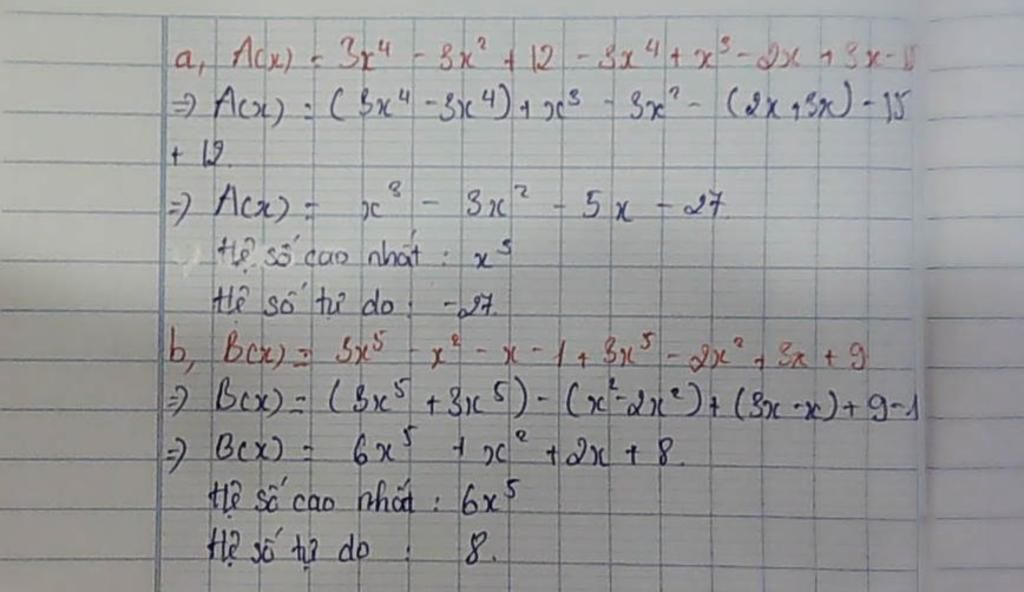 a, A(x) = 3x⁴ - 3x² + 12 - 3x⁴ + x³ - 2x + 3x - 1
=> A(x) = (3x⁴ - 3x⁴) + x³ - 3x² - (2x + 3x) - 15
+ 12.
=> A(x) = x³ - 3x² - 5x - 27.
Hệ số cao nhất : x³
Hệ số tự do : -27.
b, B(x) = 3x⁵ - x² - x - 1 + 3x⁵ - 2x² + 3x + 9
=> B(x) = (3x⁵ + 3x⁵) - (x² - 2x²) + (3x - x) + 9 - 1
=> B(x) = 6x⁵ + x² + 2x + 8.
Hệ số cao nhất : 6x⁵
Hệ số tự do : 8.